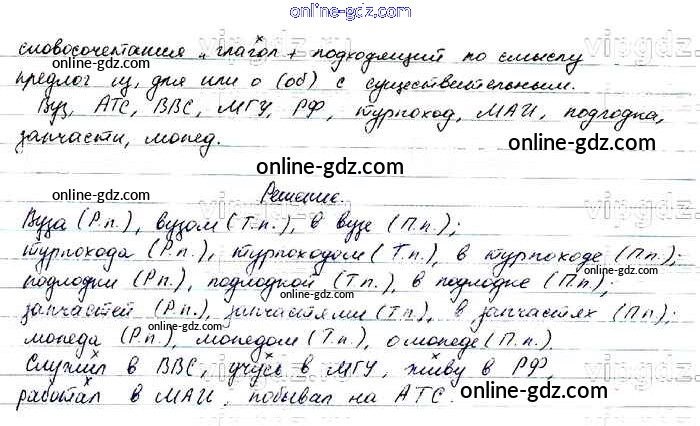 online-gdz.com
словосочетания „глагол + подходящий по смыслу
предлог из, для или о (об) с существительным.
Вуз, АТС, ВВС, МГУ, РФ, турпоход, МАИ, подлодка,
запчасти, мопед.
online-gdz.com
online-gdz.com
Решение.
Вуза (Р.п.), вузом (Т.п.), в вузе (П.п.);
турпохода (Р.п.), турпоходом (Т.п.), в турпоходе (П.п.);
подлодки (Р.п.), подлодкой (Т.п.), в подлодке (П.п.);
запчастей (Р.п.), запчастями (Т.п.), в запчастях (П.п.);
мопеда (Р.п.), мопедом (Т.п.), о мопеде (П.п.)
Служил в ВВС, учусь в МГУ, живу в РФ,
работал в МАИ, побывал на АТС.
online-gdz.com